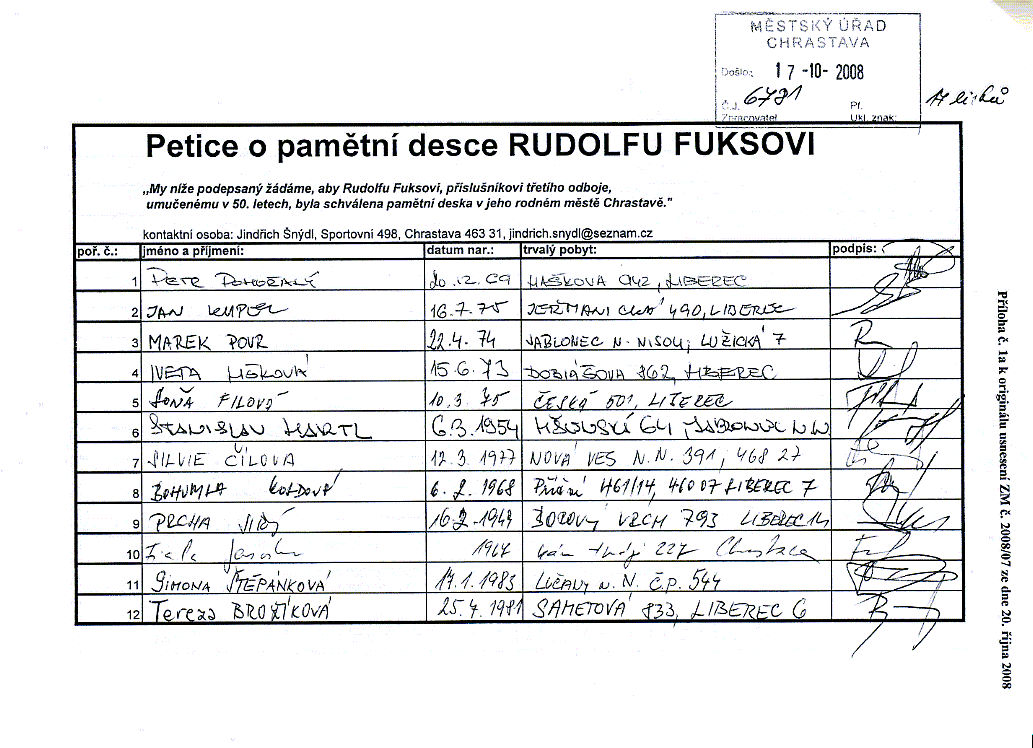 MĚSTSKÝ ÚŘAD
CHRASTAVA
Došlo: 17-10-2008
Č.J. 6781 Př.
Zpracovatel Ukl. znak:
Petice o pamětní desce RUDOLFU FUKSOVI
„My níže podepsaný žádáme, aby Rudolfu Fuksovi, příslušníkovi třetího odboje,
umučenému v 50. letech, byla schválena pamětní deska v jeho rodném městě Chrastavě."
kontaktní osoba: Jindřich Šnýdl, Sportovní 498, Chrastava 463 31, jindrich.snydl@seznam.cz
poř. č.: jméno a příjmení: datum nar.: trvalý pobyt: podpis:
1 PETR 20.12.69 HAŠKOVA 942, LIBEREC
2 JAN 16.7.75 490, LIBEREC
3 MAREK POUR 22.4.74 JABLONEC N. NISOU, LUŽICKÁ 7
4 IVETA 15.6.73 DOBIÁŠOVA 862, LIBEREC
5 FILOVÁ 10.3.75 ČESKÁ 501, LIBEREC
6 STANISLAV HARTL 6.3.1954 JABLONEC N N
7 SILVIE ČÍLOVA 12.3.1977 NOVÁ VES N.N. 391, 468 27
8 BOHUMILA 6.2.1968 461/14, 46007 LIBEREC 7
9 PRCHA JIŘÍ BOROVÝ VRCH 793 LIBEREC 14
10 227 Chrastava
11 SIMONA ŠTĚPÁNKOVÁ 17.1.1983 LUČANY N. N. Č.P. 544
12 Tereza BROŽÍKOVÁ 25.4.1981 SAMETOVÁ 833, LIBEREC 6
Příloha č. 1a k originálu usnesení ZM č. 2008/07 ze dne 20. října 2008